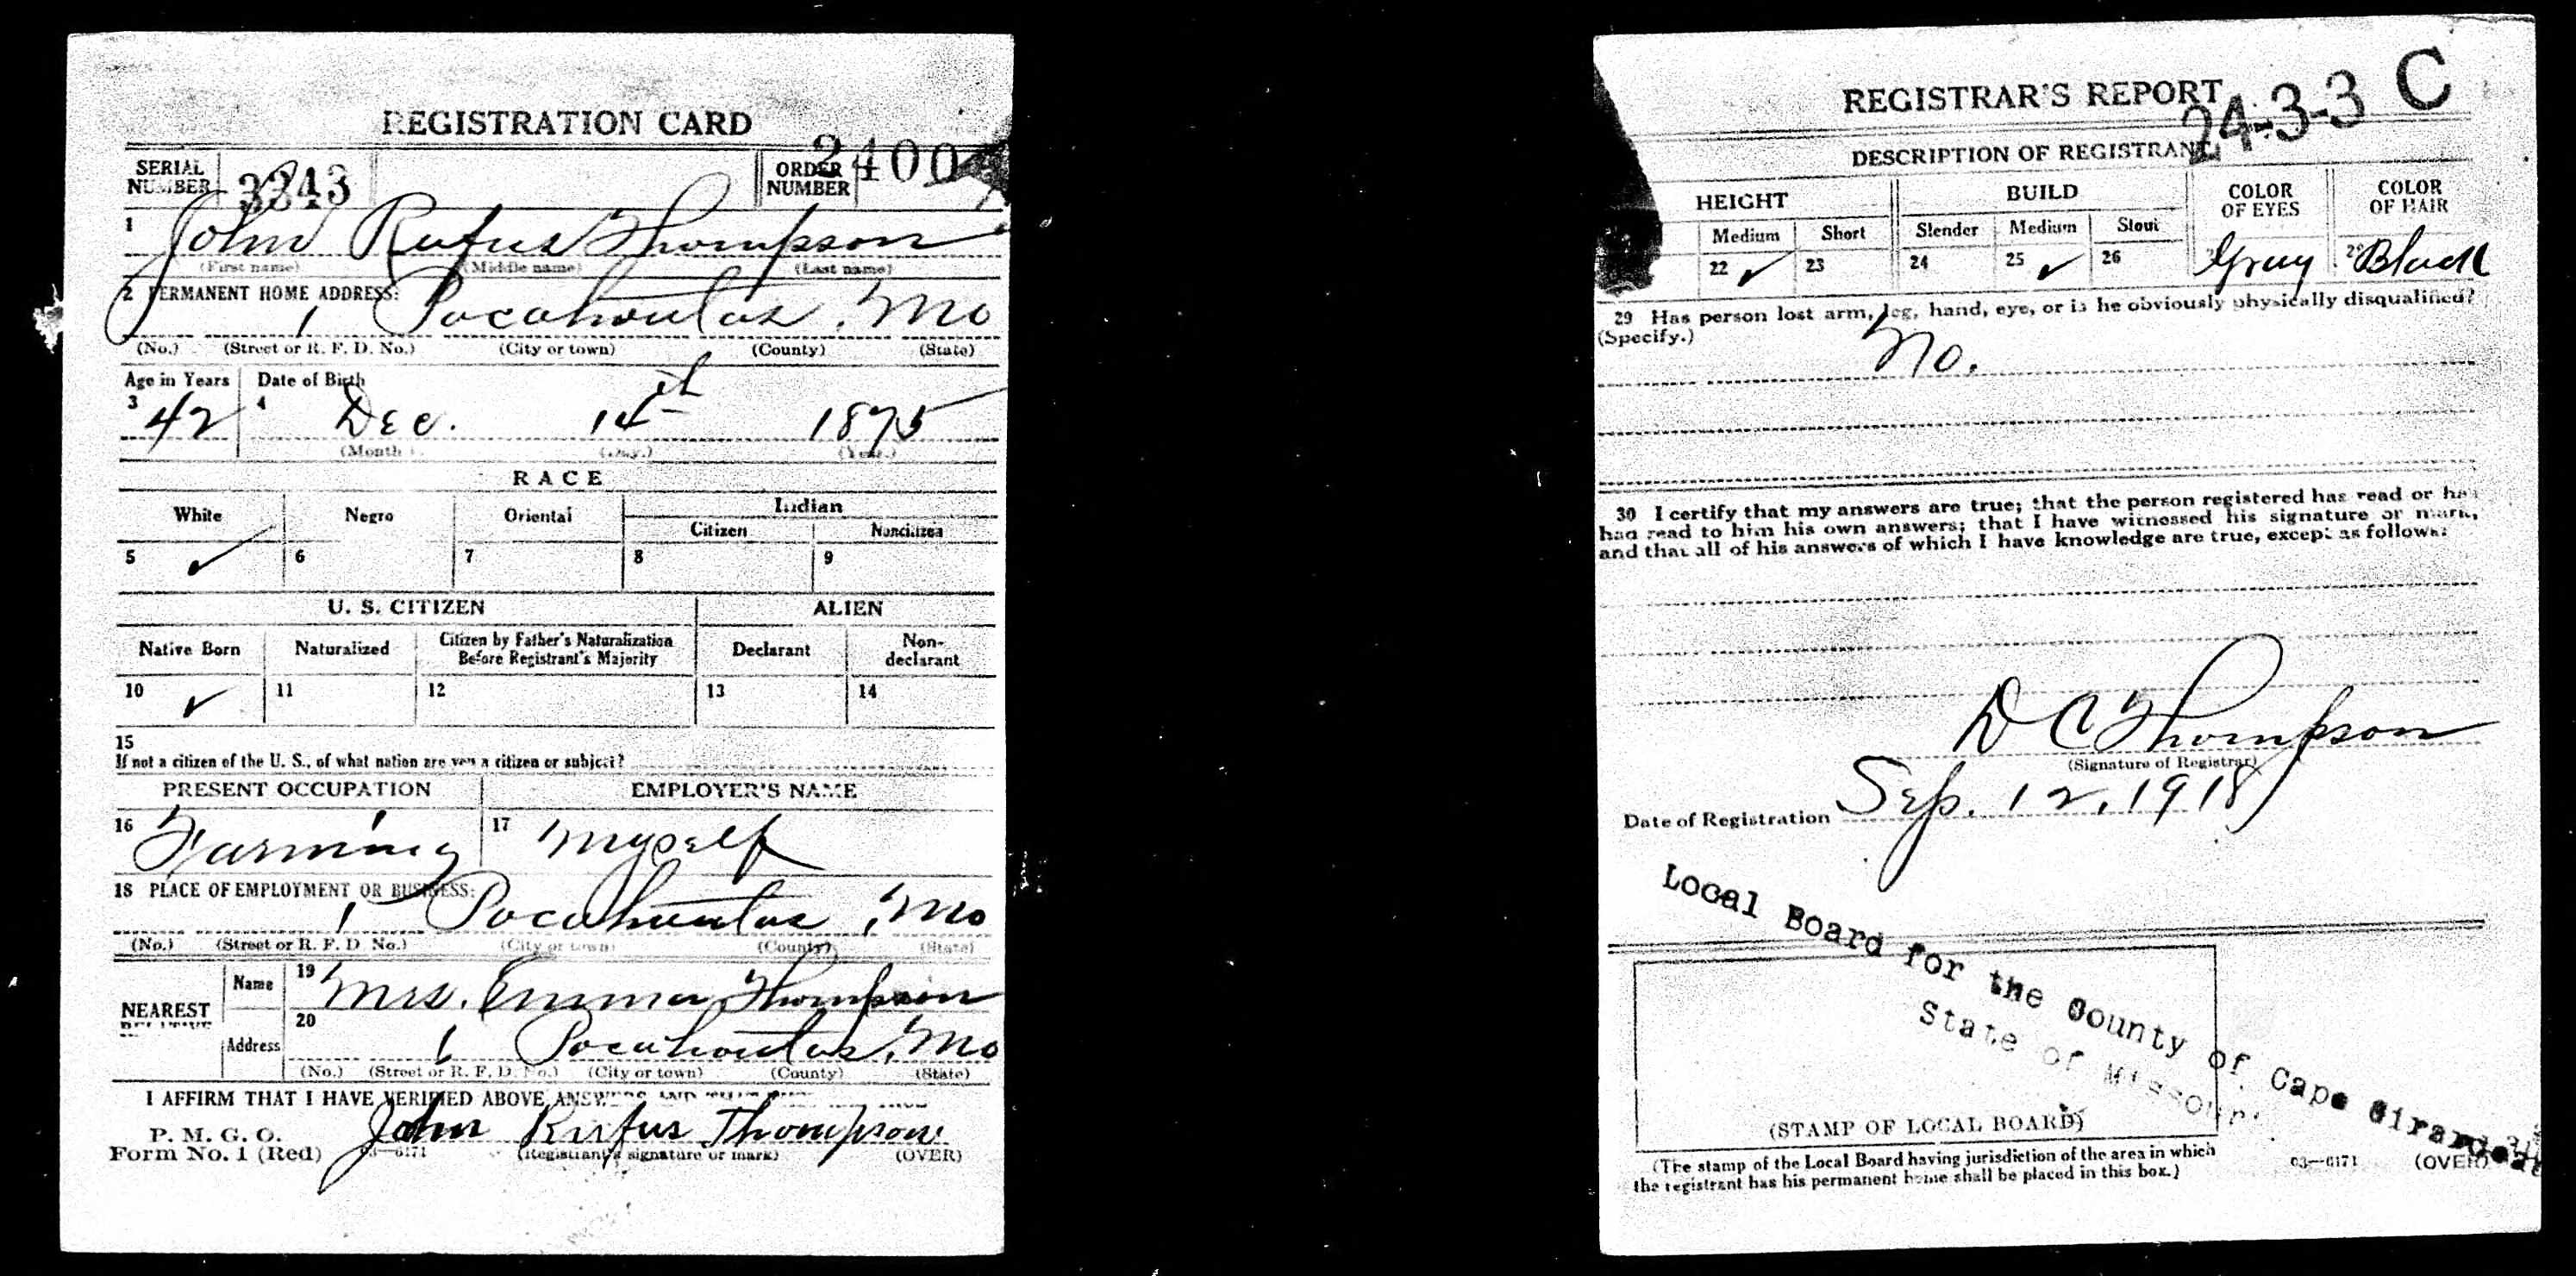 REGISTRATION CARD
SERIAL NUMBER 3343 ORDER NUMBER 2400
1 John Rufus Thompson
(First name) (Middle name) (Last name)
2 PERMANENT HOME ADDRESS:
1 Pocahontas, Mo
(No.) (Street or R. F. D. No.) (City or town) (County) (State)
Age in Years Date of Birth
3 42 4 Dec. 14th 1875
(Month) (Day.) (Year.)
RACE
White Negro Oriental Indian
Citizen Noncitizen
5 ✓ 6 7 8 9
U. S. CITIZEN ALIEN
Native Born Naturalized Citizen by Father's Naturalization Before Registrant's Majority Declarant Non-declarant
10 ✓ 11 12 13 14
15
If not a citizen of the U. S., of what nation are you a citizen or subject?
PRESENT OCCUPATION EMPLOYER'S NAME
16 Farming 17 myself
18 PLACE OF EMPLOYMENT OR BUSINESS:
1 Pocahontas, Mo
(No.) (Street or R. F. D. No.) (City or town) (County) (State)
NEAREST RELATIVE
Name 19 Mrs. Emma Thompson
Address 20 1 Pocahontas, Mo
(No.) (Street or R. F. D. No.) (City or town) (County) (State)
I AFFIRM THAT I HAVE VERIFIED ABOVE ANSWERS AND
P. M. G. O.
Form No. 1 (Red) 03—6171 John Rufus Thompson
(Registrant's signature or mark) (OVER)
REGISTRAR'S REPORT
24-3-3 C
DESCRIPTION OF REGISTRANT
HEIGHT BUILD COLOR OF EYES COLOR OF HAIR
Medium Short Slender Medium Stout
22 ✓ 23 24 25 ✓ 26 Gray Black
29 Has person lost arm, leg, hand, eye, or is he obviously physically disqualified?
(Specify.) No.
30 I certify that my answers are true; that the person registered has read or has
had read to him his own answers; that I have witnessed his signature or mark,
and that all of his answers of which I have knowledge are true, except as follows:
D C Thompson
(Signature of Registrar)
Date of Registration Sep. 12, 1918
Local Board for the County of Cape Girardeau
State of Missouri
(STAMP OF LOCAL BOARD)
(The stamp of the Local Board having jurisdiction of the area in which
the registrant has his permanent home shall be placed in this box.)
03—6171 (OVER)